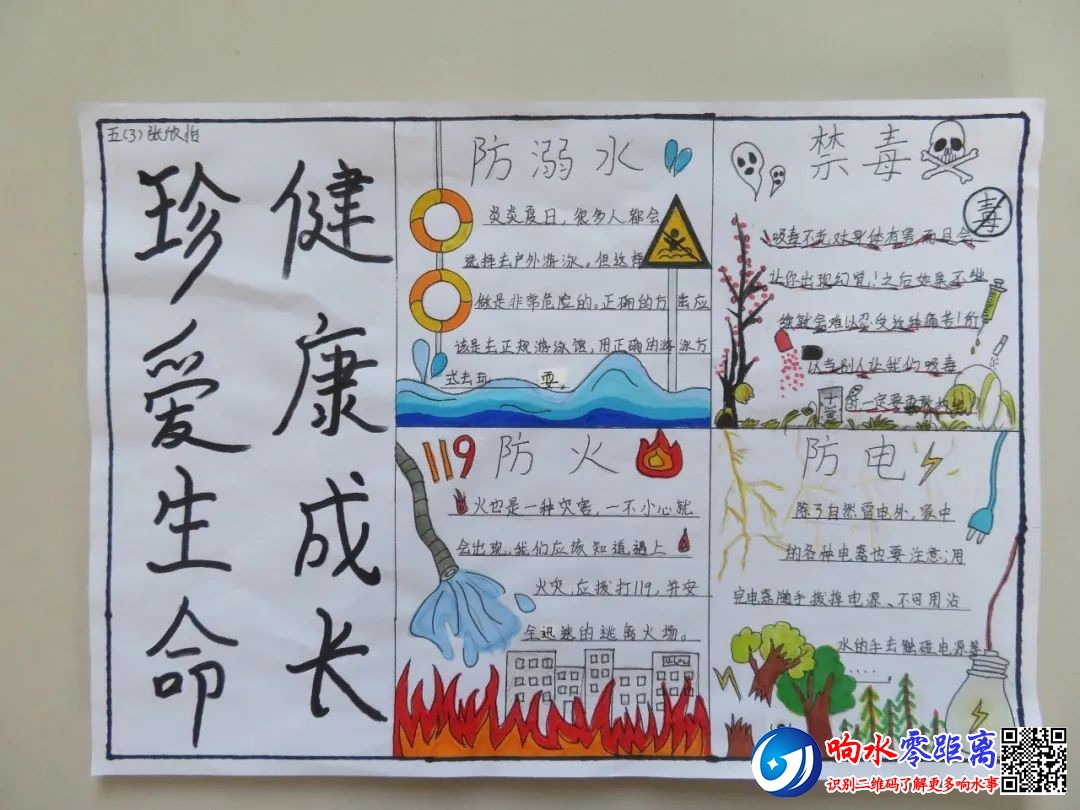 五(3)张欣怡
珍爱生命
健康成长
防溺水
炎炎夏日，很多人都会
选择去户外游泳。但这样
做是非常危险的。正确的方法应
该是去正规游泳馆，用正确的游泳方
式去玩耍。
禁毒
毒
吸毒不光对身体有害而且会
让你出现幻觉！之后如果不继
续就会难以忍受这种痛苦！所
以当别人让我们吸毒
时一定要勇敢
119 防火
火也是一种灾害，一不小心就
会出现，我们应该知道遇上
火灾，应拨打119，并安
全迅速的逃离火场。
防电
除了自然雷电外，家中
的各种电器也要注意；用
完电器随手拨掉电源、不可用沾
水的手去触碰电源等
......
响水零距离
识别二维码了解更多响水事